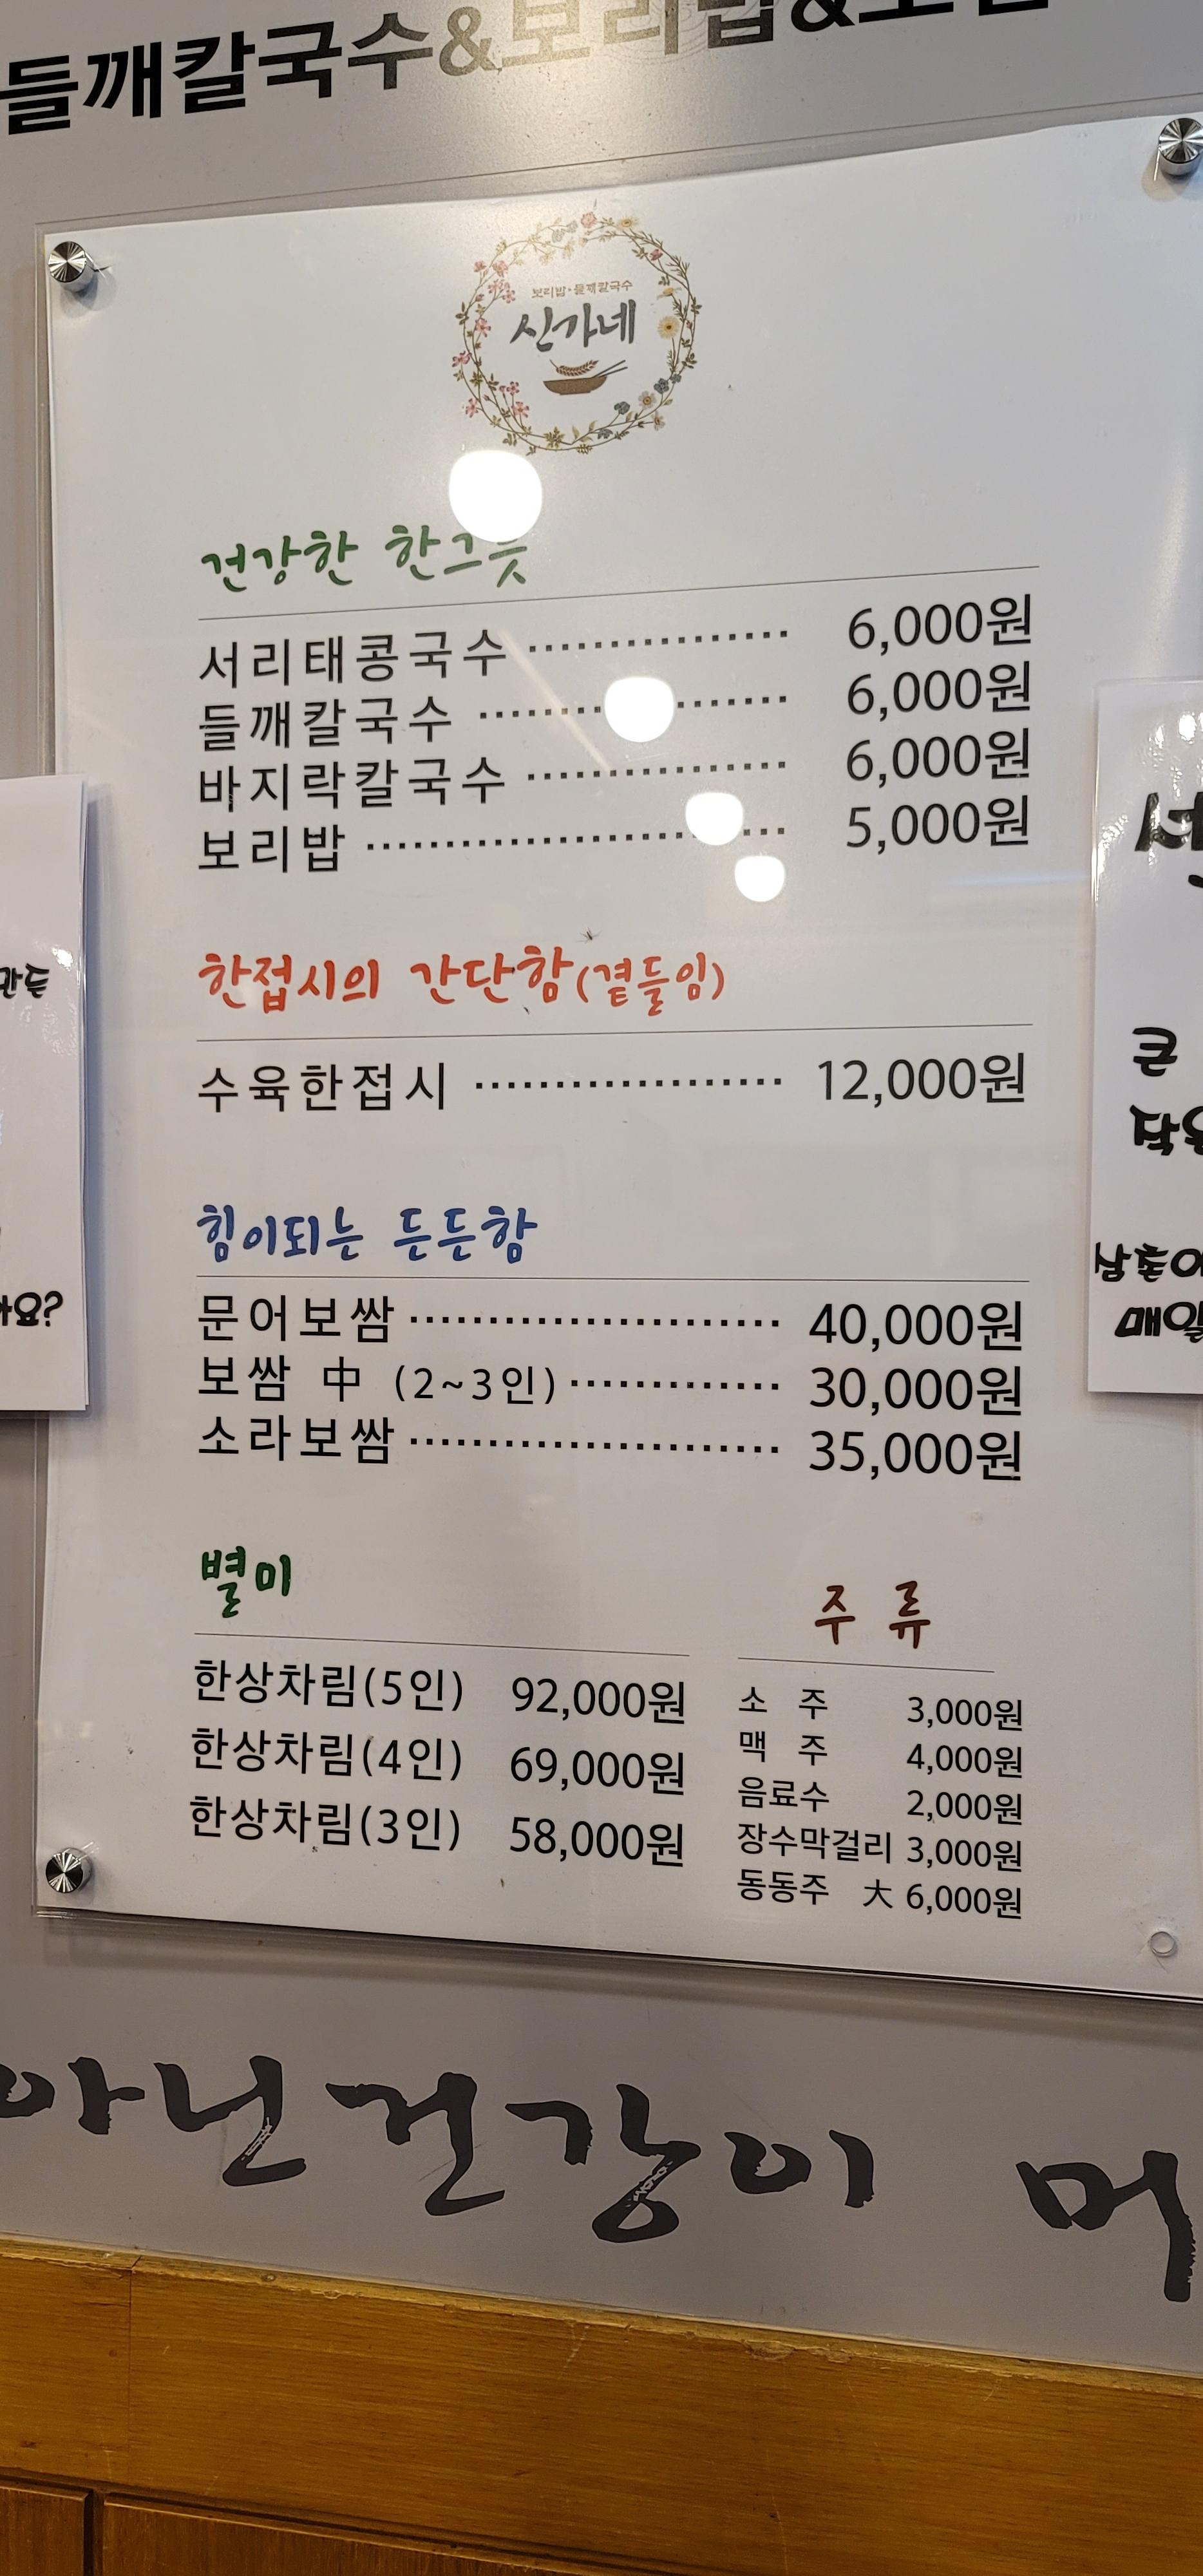 들깨칼국수&보리밥&보쌈
보리밥·들깨칼국수
신가네
건강한 한그릇
서리태콩국수 ················ 6,000원
들깨칼국수 ················ 6,000원
바지락칼국수 ················ 6,000원
보리밥 ················ 5,000원
한접시의 간단함(곁들임)
수육한접시 ···················· 12,000원
힘이되는 든든함
문어보쌈 ························ 40,000원
보쌈 中 (2~3인) ·············· 30,000원
소라보쌈 ························ 35,000원
별미
한상차림(5인) 92,000원
한상차림(4인) 69,000원
한상차림(3인) 58,000원
주 류
소 주 3,000원
맥 주 4,000원
음료수 2,000원
장수막걸리 3,000원
동동주 大 6,000원
큰
아닌건강이 머